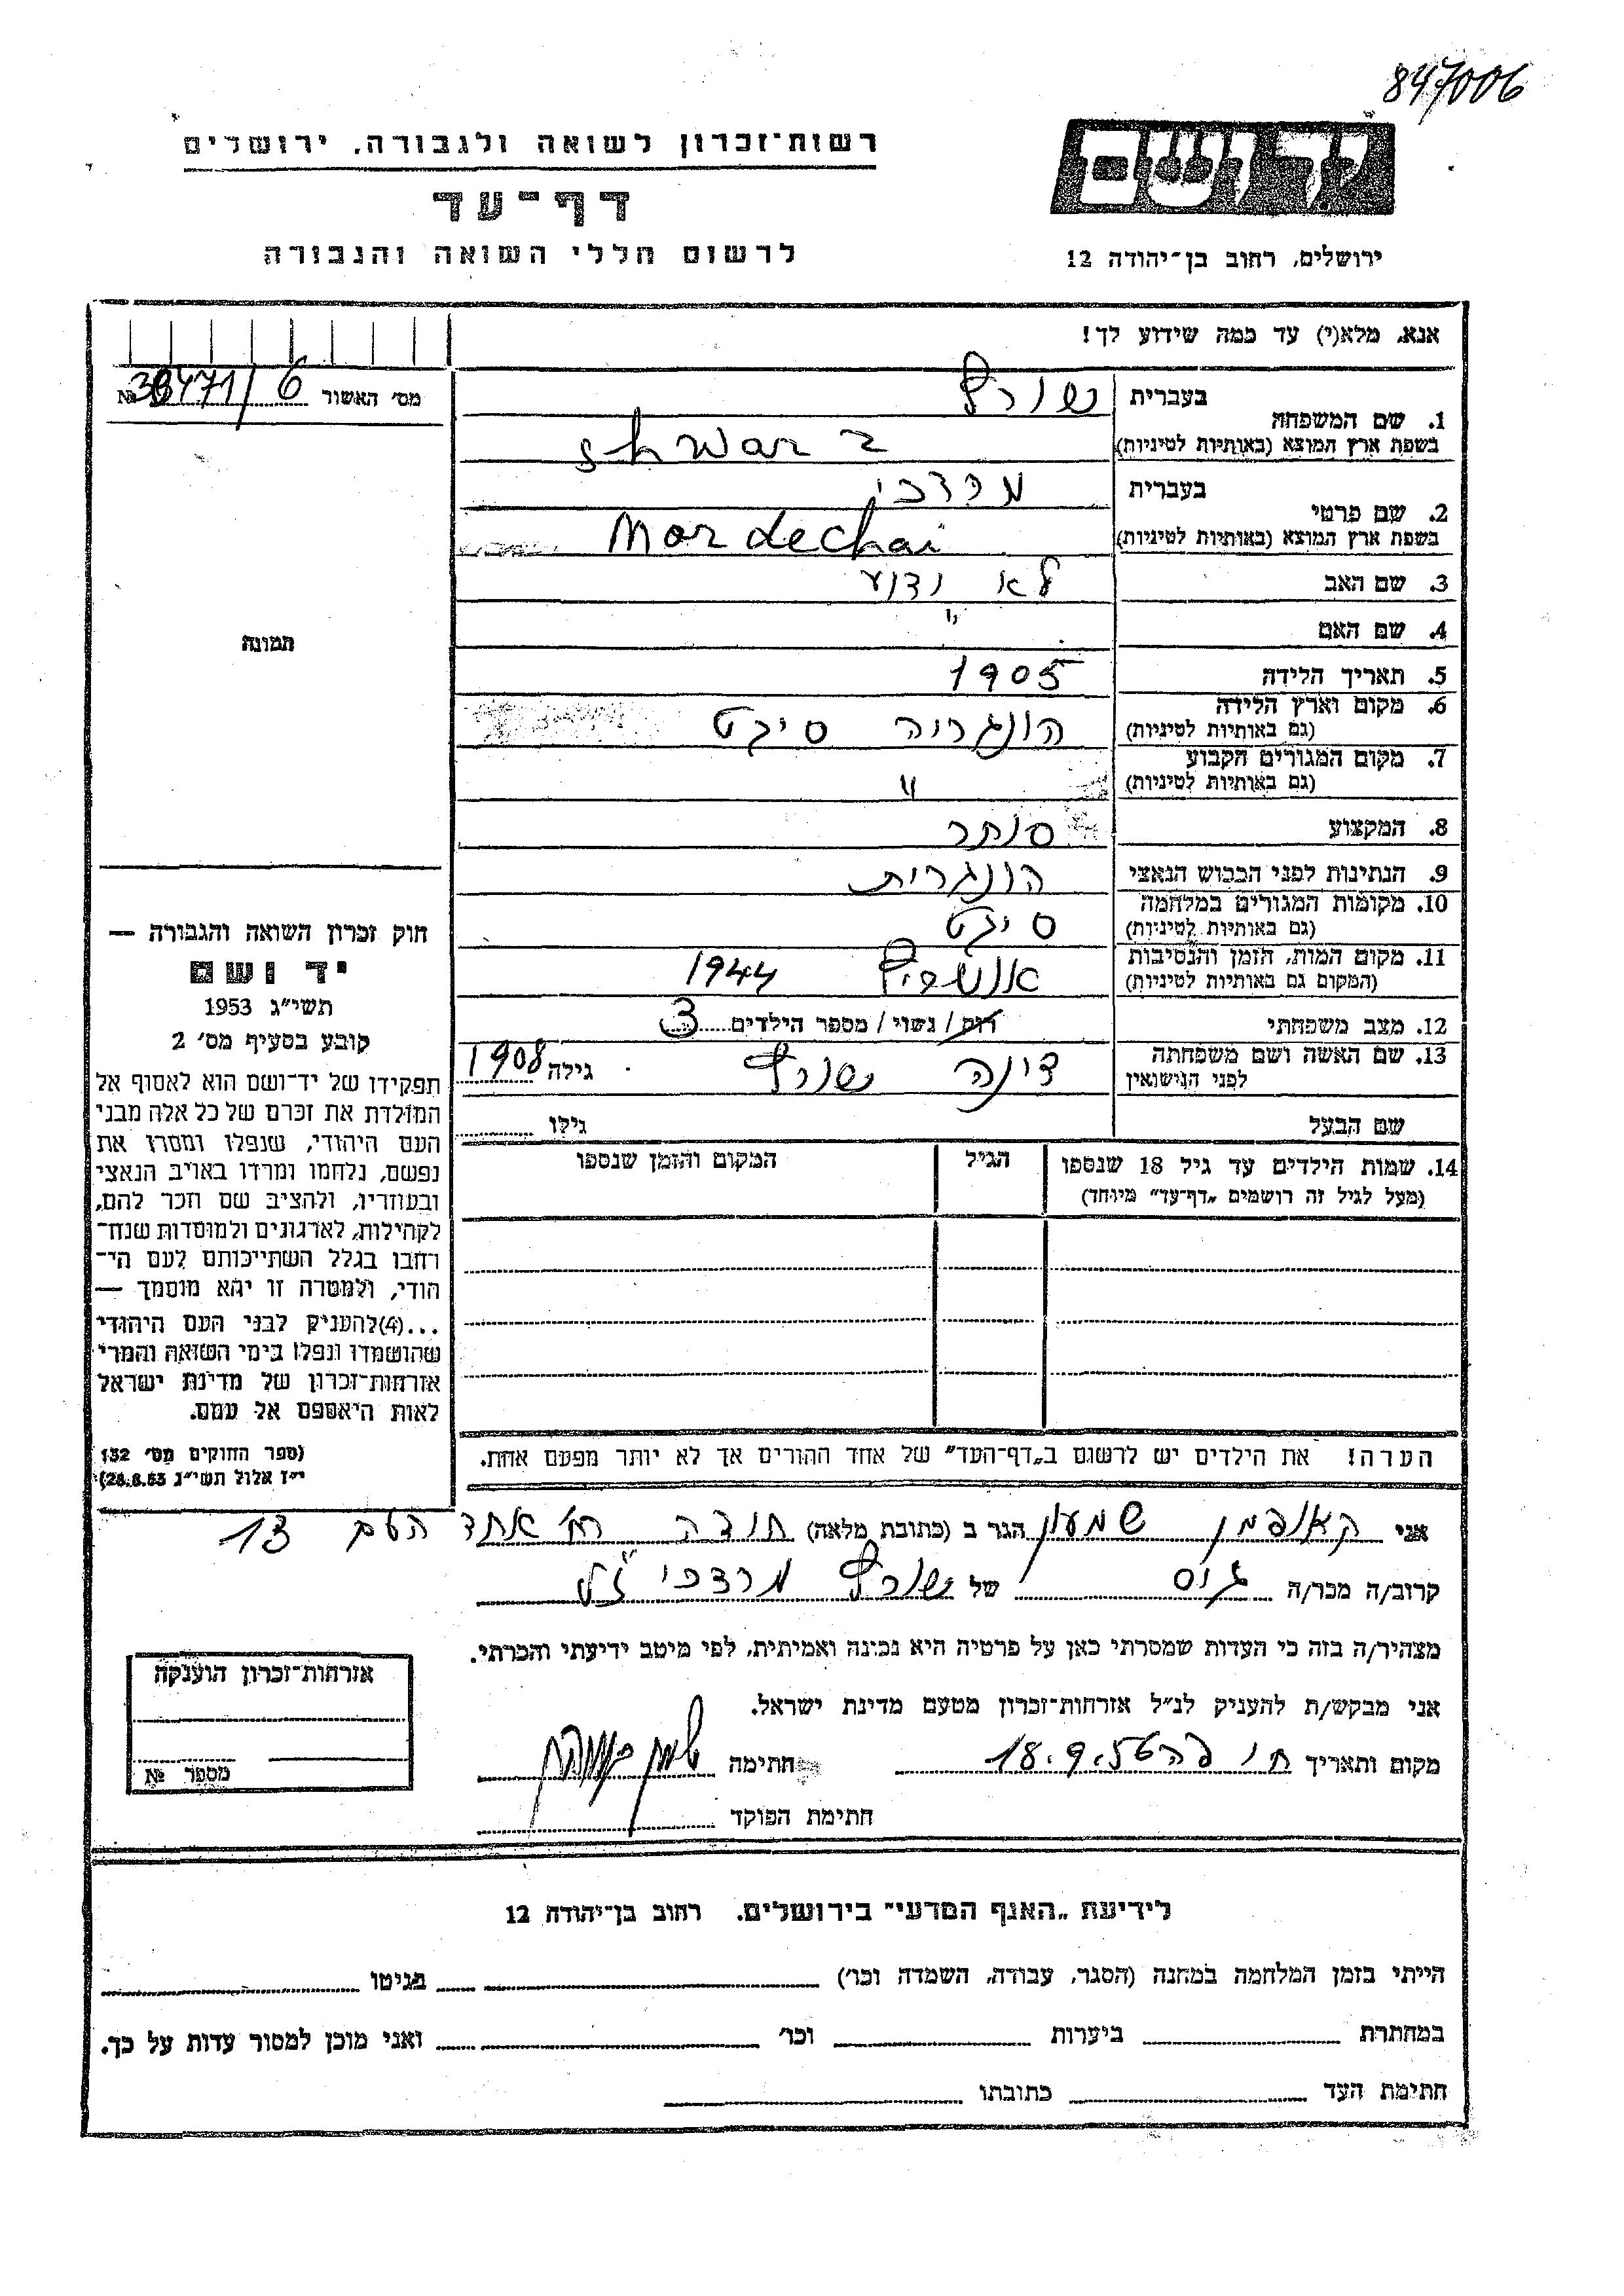 847006
רשות־זכרון לשואה ולגבורה, ירושלים
ידושם
דף־עד
לרשום חללי השואה והגבורה
ירושלים, רחוב בן־יהודה 12
אנא, מלא(י) עד כמה שידוע לך!
מס׳ האשור 6 / 38471 №
בעברית שוורץ
1. שם המשפחה
בשפת ארץ המוצא (באותיות לטיניות) shwarz
בעברית מרדכי
2. שם פרטי
בשפת ארץ המוצא (באותיות לטיניות) Mordechai
3. שם האב לא ידוע
4. שם האם "
תמונה
5. תאריך הלידה 1905
6. מקום וארץ הלידה
(גם באותיות לטיניות) הונגריה סיגט
7. מקום המגורים הקבוע
(גם באותיות לטיניות) "
8. המקצוע סוחר
9. הנתינות לפני הכבוש הנאצי הונגרית
10. מקומות המגורים במלחמה
(גם באותיות לטיניות) סיגט
11. מקום המות, הזמן והנסיבות
(המקום גם באותיות לטיניות) אושויץ 1944
12. מצב משפחתי רווק / נשוי / מספר הילדים 3
13. שם האשה ושם משפחתה
לפני הנישואין דינה שוורץ גילה 1908
שם הבעל גילו
14. שמות הילדים עד גיל 18 שנספו הגיל המקום והזמן שנספו
(מעל לגיל זה רושמים „דף־עד” מיוחד)
חוק זכרון השואה והגבורה —
יד ושם
תשי״ג 1953
קובע בסעיף מס׳ 2
תפקידו של יד־ושם הוא לאסוף אל
המולדת את זכרם של כל אלה מבני
העם היהודי, שנפלו ומסרו את
נפשם, נלחמו ומרדו באויב הנאצי
ובעוזריו, ולהציב שם וזכר להם,
לקהילות, לארגונים ולמוסדות שנח־
רבו בגלל השתייכותם לעם הי־
הודי, ולמטרה זו יהא מוסמך —
...(4) להעניק לבני העם היהודי
שהושמדו ונפלו בימי השואה והמרי
אזרחות־זכרון של מדינת ישראל
לאות היאספם אל עמם.
(ספר החוקים מס׳ 132
י״ז אלול תשי״ג 28.8.53)
הערה! את הילדים יש לרשום ב„דף־העד” של אחד ההורים אך לא יותר מפעם אחת.
אני קאופמן שמעון הגר ב (כתובת מלאה) חדרה רח׳ אחד העם 13
קרוב/ה מכר/ה גיס של שוורץ מרדכי ז״ל
מצהיר/ה בזה כי העדות שמסרתי כאן על פרטיה היא נכונה ואמיתית, לפי מיטב ידיעתי והכרתי.
אני מבקש/ת להעניק לנ״ל אזרחות־זכרון מטעם מדינת ישראל.
מקום ותאריך 18.9.56 חתימה
חתימת הפוקד
אזרחות־זכרון הוענקה
מספר №
לידיעת „האגף המדעי” בירושלים, רחוב בן־יהודה 12
הייתי בזמן המלחמה במחנה (הסגר, עבודה, השמדה וכו׳) בגיטו
במחתרת ביערות וכו׳ ואני מוכן למסור עדות על כך.
חתימת העד כתובתו